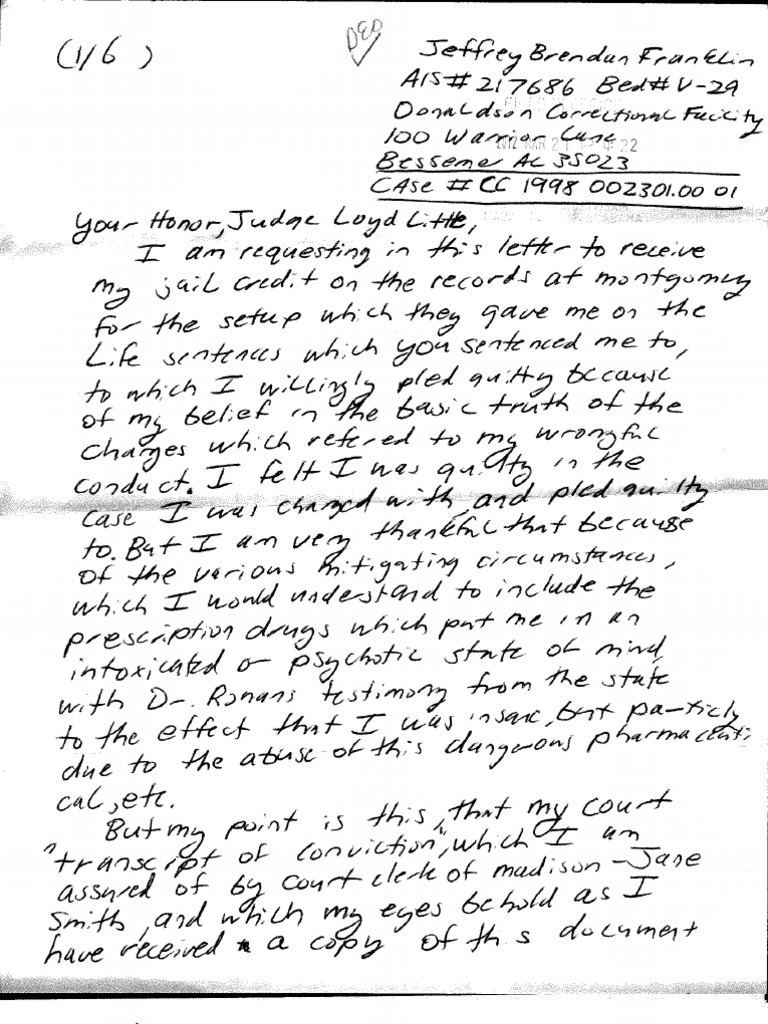 (1/6)
DEO
Jeffrey Brendan Franklin
AIS# 217686 Bed# V-29
Donaldson Correctional Facility
100 Warrior Lane
Bessemer AL 35023
CASE # CC 1998 002301.00 01
Your Honor, Judge Loyd Little,
I am requesting in this letter to receive
my jail credit on the records at montgomery
for the setup which they gave me on the
Life sentences which you sentenced me to,
to which I willingly pled guilty because
of my belief in the basic truth of the
charges which refered to my wrongful
conduct. I felt I was guilty in the
case I was charged with, and pled guilty
to. But I am very thankful that because
of the various mitigating circumstances,
which I would understand to include the
prescription drugs which put me in an
intoxicated or psychotic state of mind,
with Dr. Ronans testimony from the state
to the effect that I was insane, but particly
due to the abuse of this dangerous pharmaceuti
cal, etc.
But my point is this, that my court
"transcript of conviction," which I am
assured of by court clerk of madison - Jane
Smith, and which my eyes behold as I
have received a copy of this document